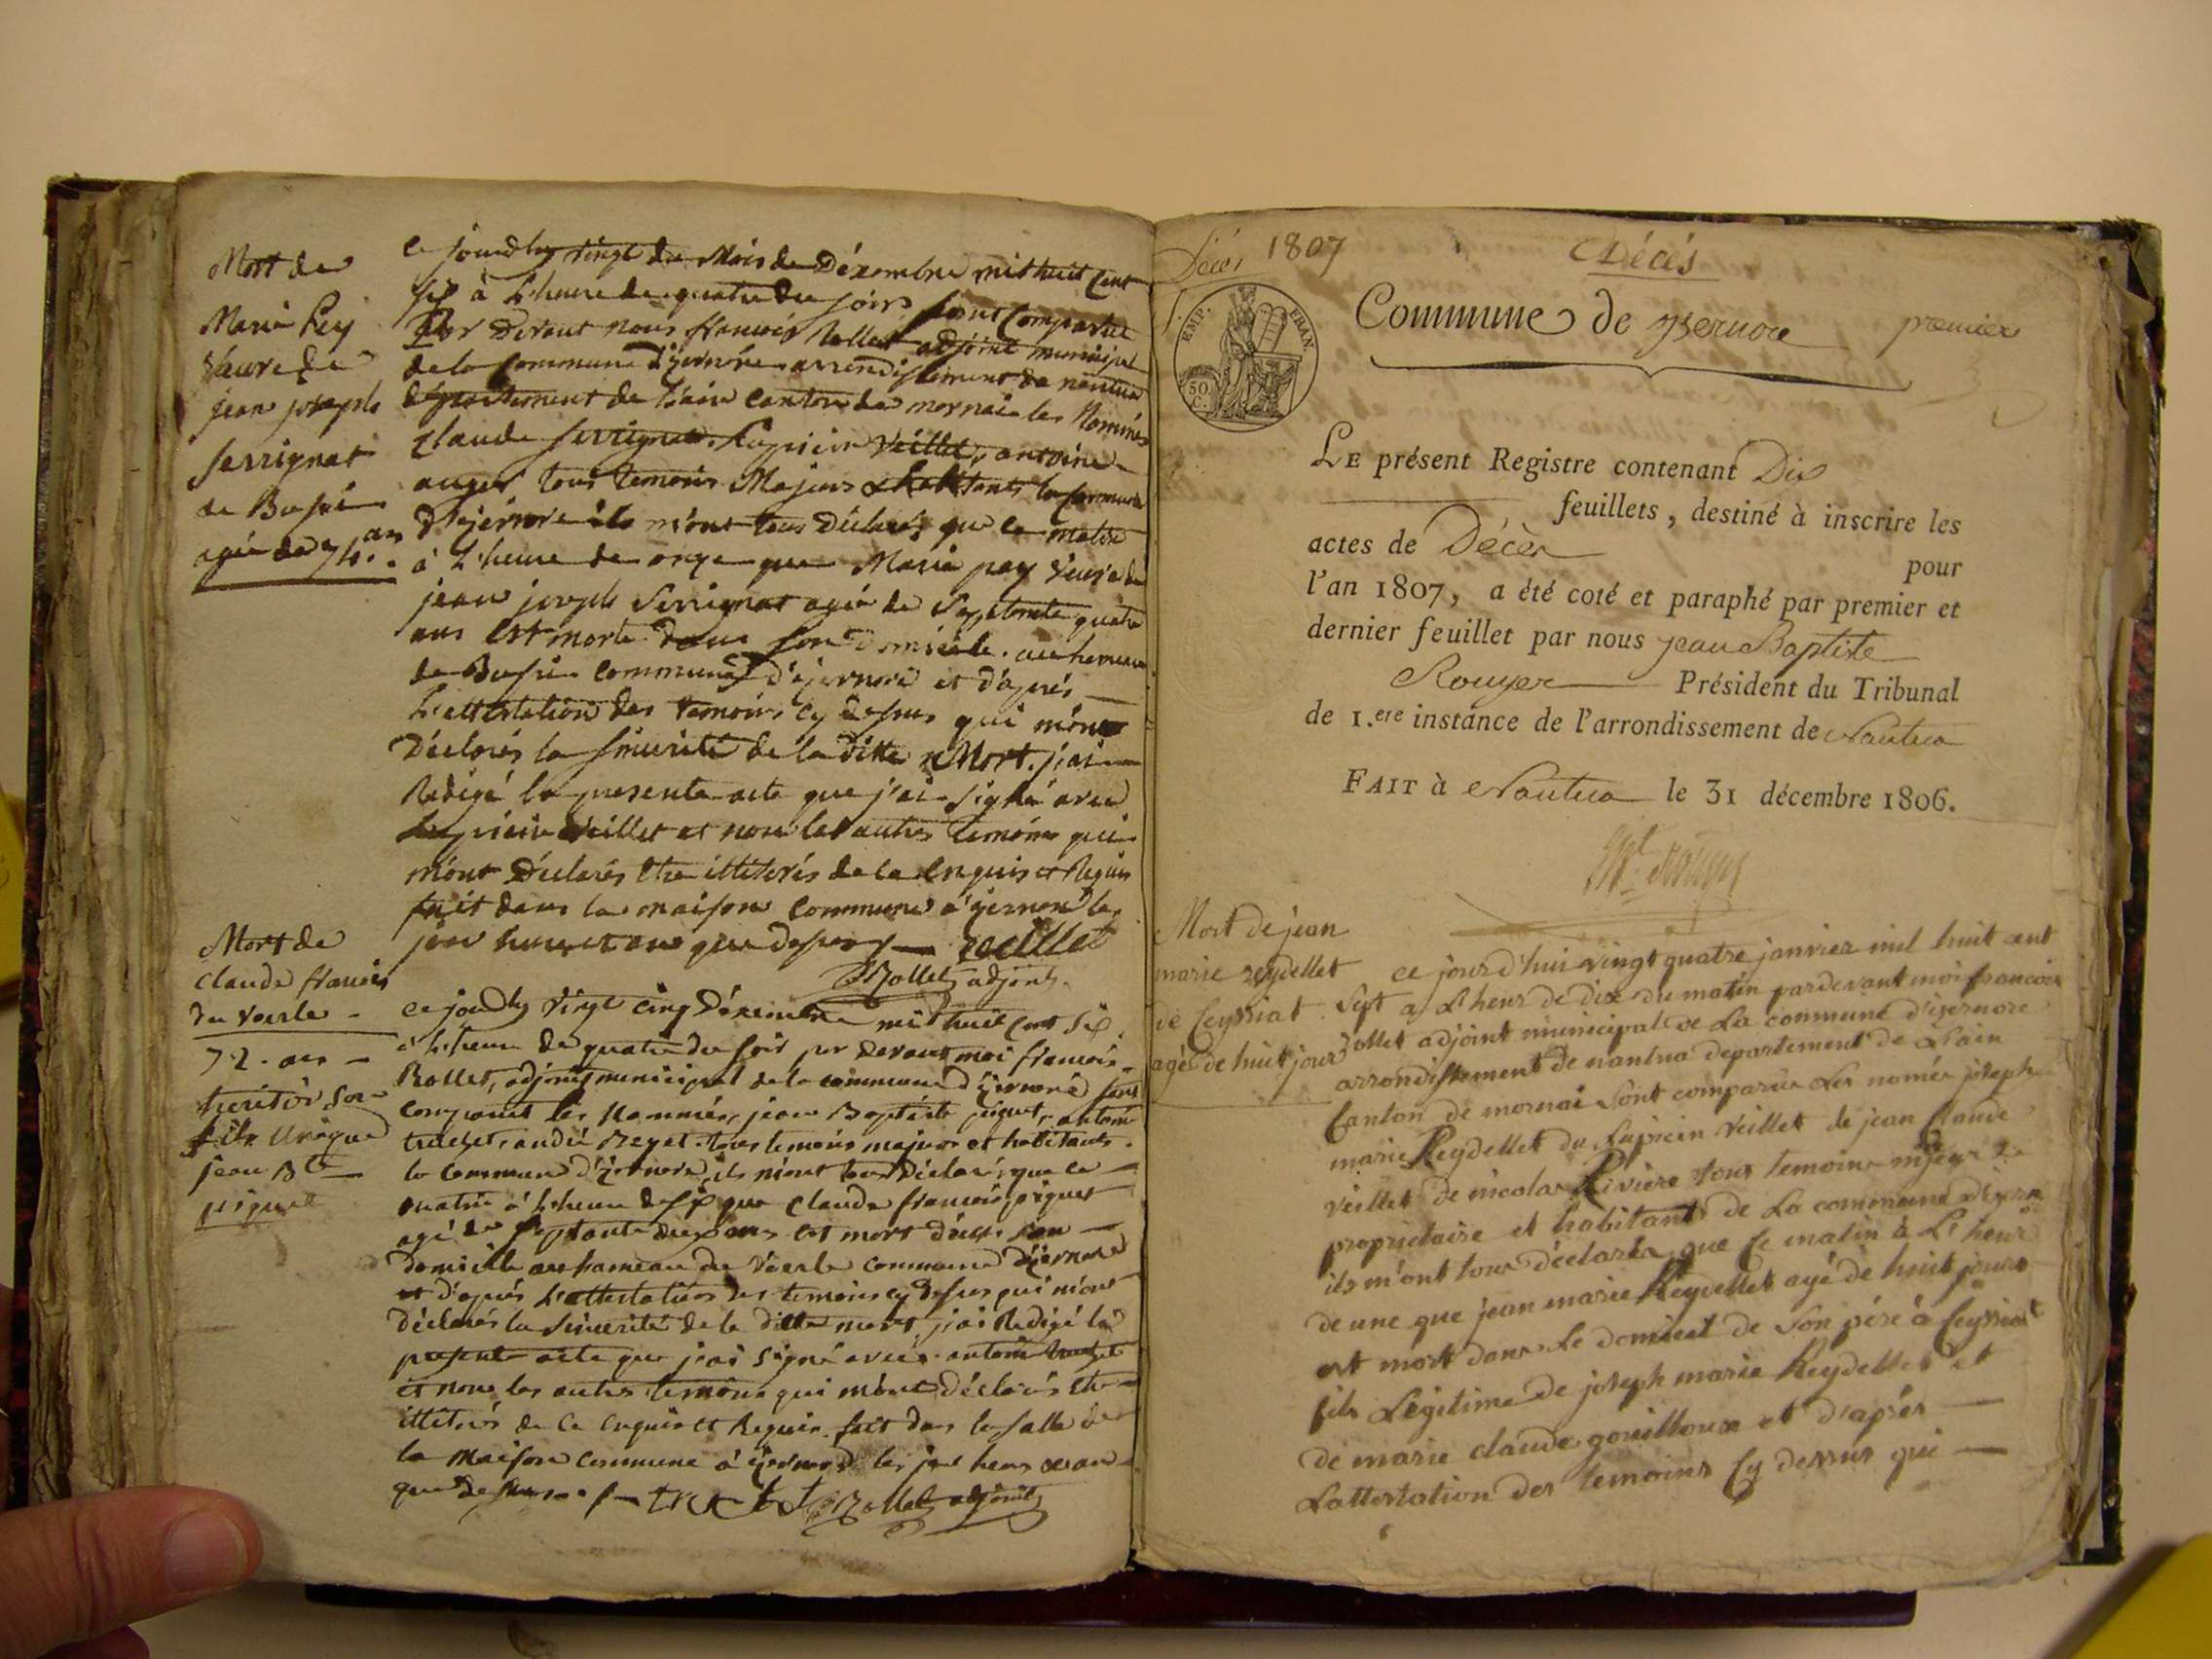 Mort de
Marie Pey
Veuve de
jean joseph
Serrignat
de Bussi
agée de 74. ans
ce jourdhuy vingt du Mois de Décembre mil huit Cent
six à L'heure de quatre du soir, sont Comparus
Par Devant nous francois Rollet adjoint municipal
de la Commune d'izernore arrondissement de nantua
département de L'ain canton de mornai les Nommés
Claude Serrignat, Lupicin Veillet, antoine
auger tous temoins Majeurs & habitants la Commune
d'izernore ils m'ont tous Déclarés que ce matin
à L'heure de onze que Marie pey veuve de
jean joseph Serrignat agée de Septante quatre
ans est morte dans son domicile au hameau
de Bussi Commune d'izernore et d'après
L'attestation des temoins cy dessus qui m'ont
Déclarés la sincerité de la ditte Mort, j'ai
Redigé la presente acte que j'ai signé avec
Lupicin Veillet et non les autres temoins qui
m'ont Déclarés être illiterés de ce enquis et Requis
fait dans la maison Commune d'izernore les
jour heure et an que dessus veillet
Rollet adjoint
Mort de
claude francois
du Voerle
72. ans
heritier son
fils Unique
jean Bte
piquet
ce jourdhuy vingt cinq Décembre mil huit Cent Six
à L'heure de quatre du soir par devant moi francois
Rollet, adjoint municipal de la commune d'izernore sont
comparus les Nommés, jean Baptiste piquet, antoine
truchet, andré Reyet tous temoins majeurs et habitants
la Commune d'izernore, ils m'ont tous Déclarés que ce
matin à L'heure de six que Claude francois piquet
agé de septante deux ans est mort dans son
domicille au hameau de Voerle commune d'izernore
et d'après L'attestation des temoins cy dessus qui m'ont
Déclarés la Sincerité de la ditte mort, j'ai Redigé la
presente acte que j'ai signé avec antoine truchet
et non les autres temoins qui m'ont Déclarés être
illiterés de ce enquis et Requis fait dans la salle de
la Maison Commune à izernore les jour heure et an
que dessus truchet Rollet adjoint
Décés 1807 Décés
1.
EMP. FRAN.
50 C.
Commune de yzernore premier
LE présent Registre contenant Dix
feuillets, destiné à inscrire les
actes de Décès
pour
l'an 1807, a été coté et paraphé par premier et
dernier feuillet par nous jean Baptiste
Rouyer Président du Tribunal
de 1.ere instance de l'arrondissement de Nantua
FAIT à Nantua le 31 décembre 1806.
Mort de jean
marie reydellet
de Ceyssiat
agé de huit jour
ce jourd'hui vingt quatre janvier mil huit cent
Sept a L heure de dix du matin pardevant moi francois
rollet adjoint municipal de La commune d'izernore
arrondissement de nantua departement de L'ain
Canton de mornai Sont comparus Les només joseph
marie Reydellet du Lupicin Veillet de jean Claude
veillet de nicolas Riviere tous temoins majeur &
proprietaire et habitants de La commune d'izern
ils m'ont tous déclarés que Ce matin à L'heure
de une que jean marie Reydellet agé de huit jours
est mort dans Le domicil de Son pére à Ceyssiat
fils Légitime de joseph marie Reydellet et
de marie claude gouilloux et d'après
Lattestation des temoins Cy dessus qui